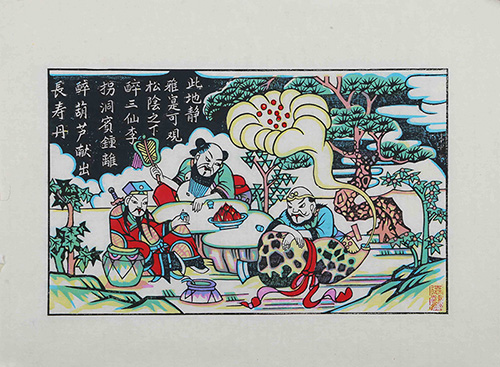 此地静
雅寔可观
松陰之下
醉三仙李
拐洞賓鍾離
醉葫芦献出
長寿丹